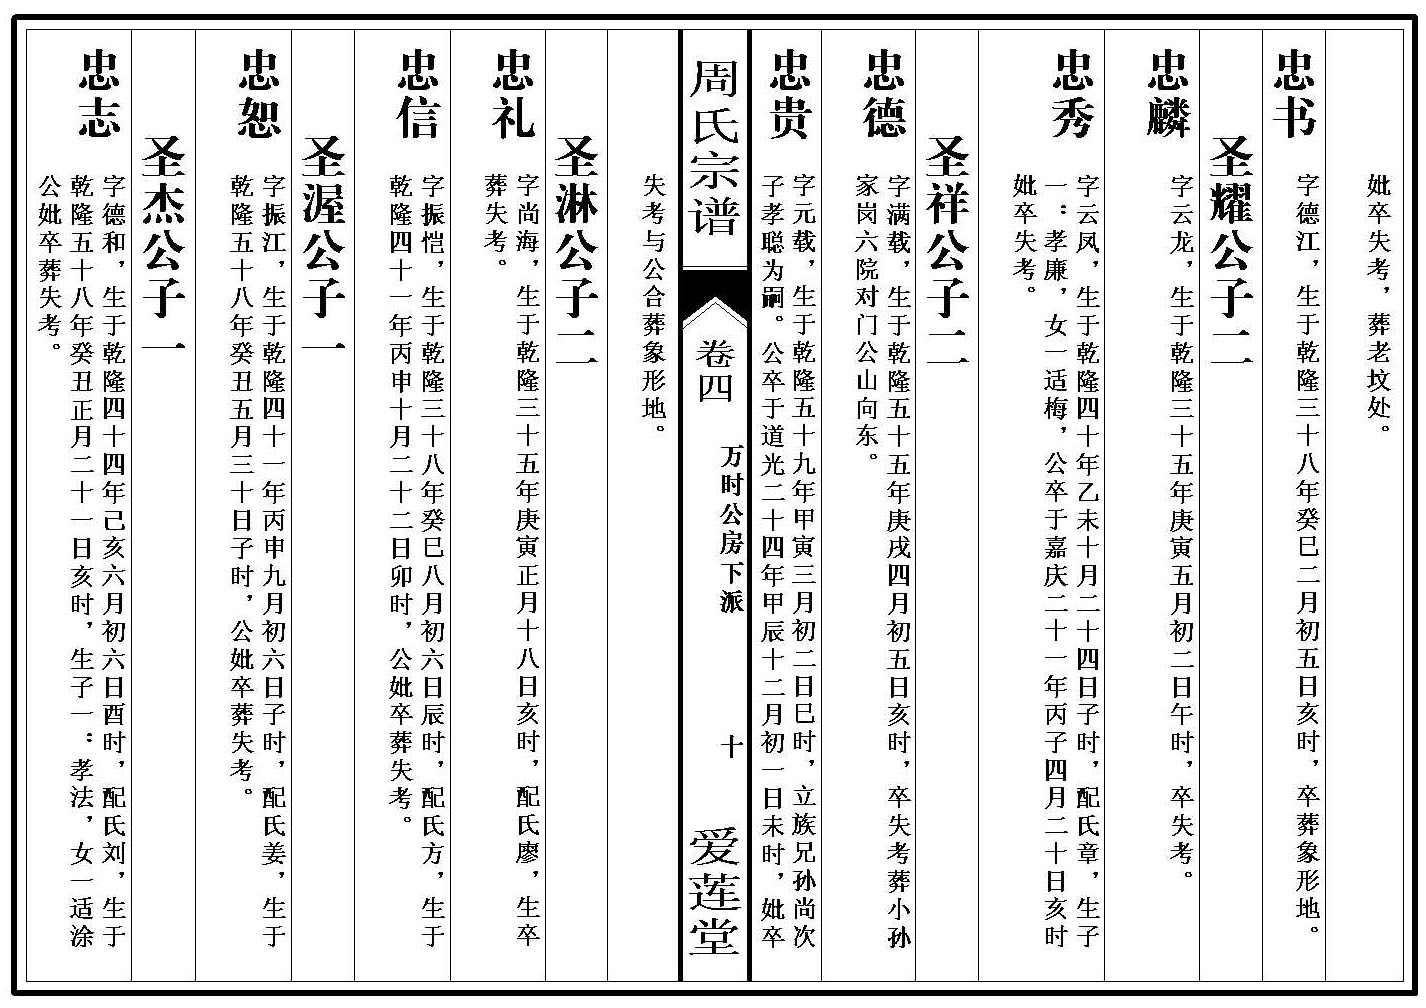 妣卒失考，葬老坟处。
忠书
字德江，生于乾隆三十八年癸巳二月初五日亥时，卒葬象形地。
圣耀公子二
忠麟
字云龙，生于乾隆三十五年庚寅五月初二日午时，卒失考。
忠秀
字云凤，生于乾隆四十年乙未十月二十四日子时，配氏章，生子
一：孝廉，女一适梅，公卒于嘉庆二十一年丙子四月二十日亥时
妣卒失考。
圣祥公子二
忠德
字满载，生于乾隆五十五年庚戌四月初五日亥时，卒失考葬小孙
家岗六院对门公山向东。
忠贵
字元载，生于乾隆五十九年甲寅三月初二日巳时，立族兄孙尚次
子孝聪为嗣。公卒于道光二十四年甲辰十二月初一日未时，妣卒
周氏宗谱
卷四
万时公房下派
十
爱莲堂
失考与公合葬象形地。
圣淋公子二
忠礼
字尚海，生于乾隆三十五年庚寅正月十八日亥时，配氏廖，生卒
葬失考。
忠信
字振恺，生于乾隆三十八年癸巳八月初六日辰时，配氏方，生于
乾隆四十一年丙申十月二十二日卯时，公妣卒葬失考。
圣渥公子一
忠恕
字振江，生于乾隆四十一年丙申九月初六日子时，配氏姜，生于
乾隆五十八年癸丑五月三十日子时，公妣卒葬失考。
圣杰公子一
忠志
字德和，生于乾隆四十四年己亥六月初六日酉时，配氏刘，生于
乾隆五十八年癸丑正月二十一日亥时，生子一：孝法，女一适涂
公妣卒葬失考。